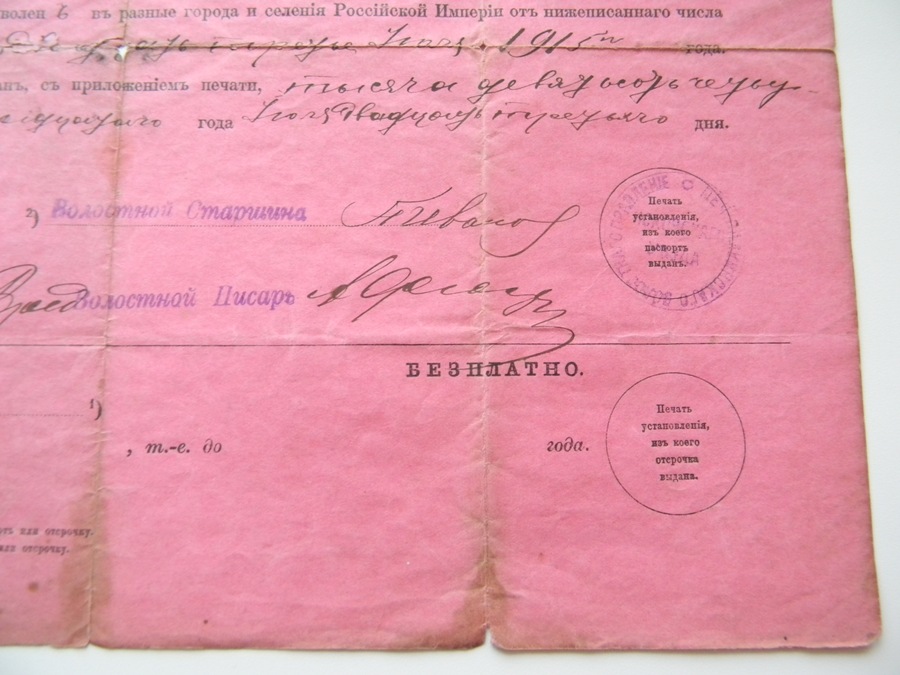 волен в въ разные города и селенія Россійской Имперіи отъ нижеписаннаго числа
Двадцать третье Іюля 1915 г. года.
анъ, съ приложеніемъ печати, тысяча девятьсотъ четыр-
надцатаго года Іюля Двадцать третьяго дня.
2) Волостной Старшина Т Иванов
Печать
установленія,
изъ коего
паспортъ
выданъ.
Волостной Писарь
БЕЗПЛАТНО.
1)
, т.-е. до года.
Печать
установленія,
изъ коего
отсрочка
выдана.
ртъ или отсрочку.
или отсрочку.